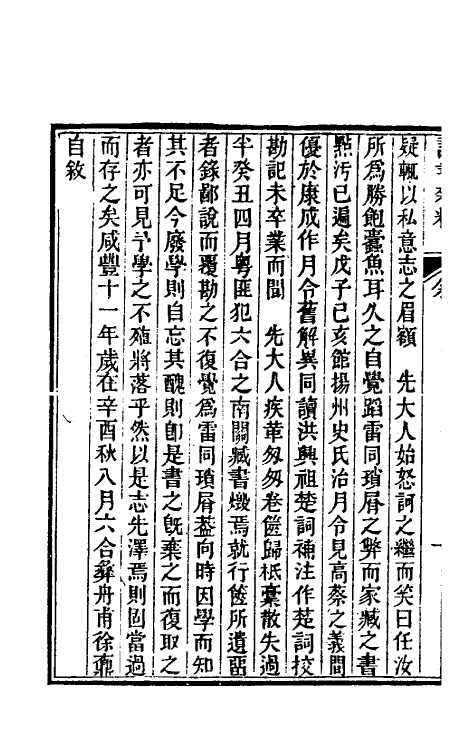 疑輒以私意志之眉額　先大人始怒訶之繼而笑曰任汝
所爲勝飽蠹魚耳久之自覺蹈雷同瑣屑之弊而家臧之書
點汚已遍矣戊子己亥館揚州史氏治月令見高蔡之義間
優於康成作月令舊解異同讀洪興祖楚詞補注作楚詞校
勘記未卒業而聞　先大人疾革匆匆卷篋歸柢橐散失過
半癸丑四月粵匪犯六合之南關臧書燬焉就行篋所遺亟
者錄鄙說而覆勘之不復覺爲雷同瑣屑葢向時因學而知
其不足今廢學則自忘其醜則卽是書之旣棄之而復取之
者亦可見予學之不殖將落乎然以是志先澤焉則固當過
而存之矣咸豐十一年歲在辛酉秋八月六合彝舟甫徐鼒
自敘